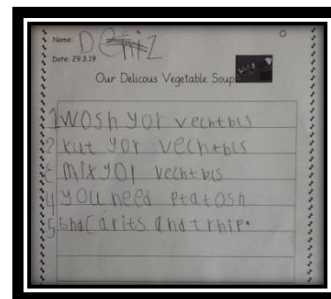 Name: Deniz
Date: 29.3.19
Our Delicous Vegetable Soup
1 wosh yor vechtbls
2 kut yor vechtbls
3 mix yor vechtbls
4 you need ptatosh
5 and carits and trnip.